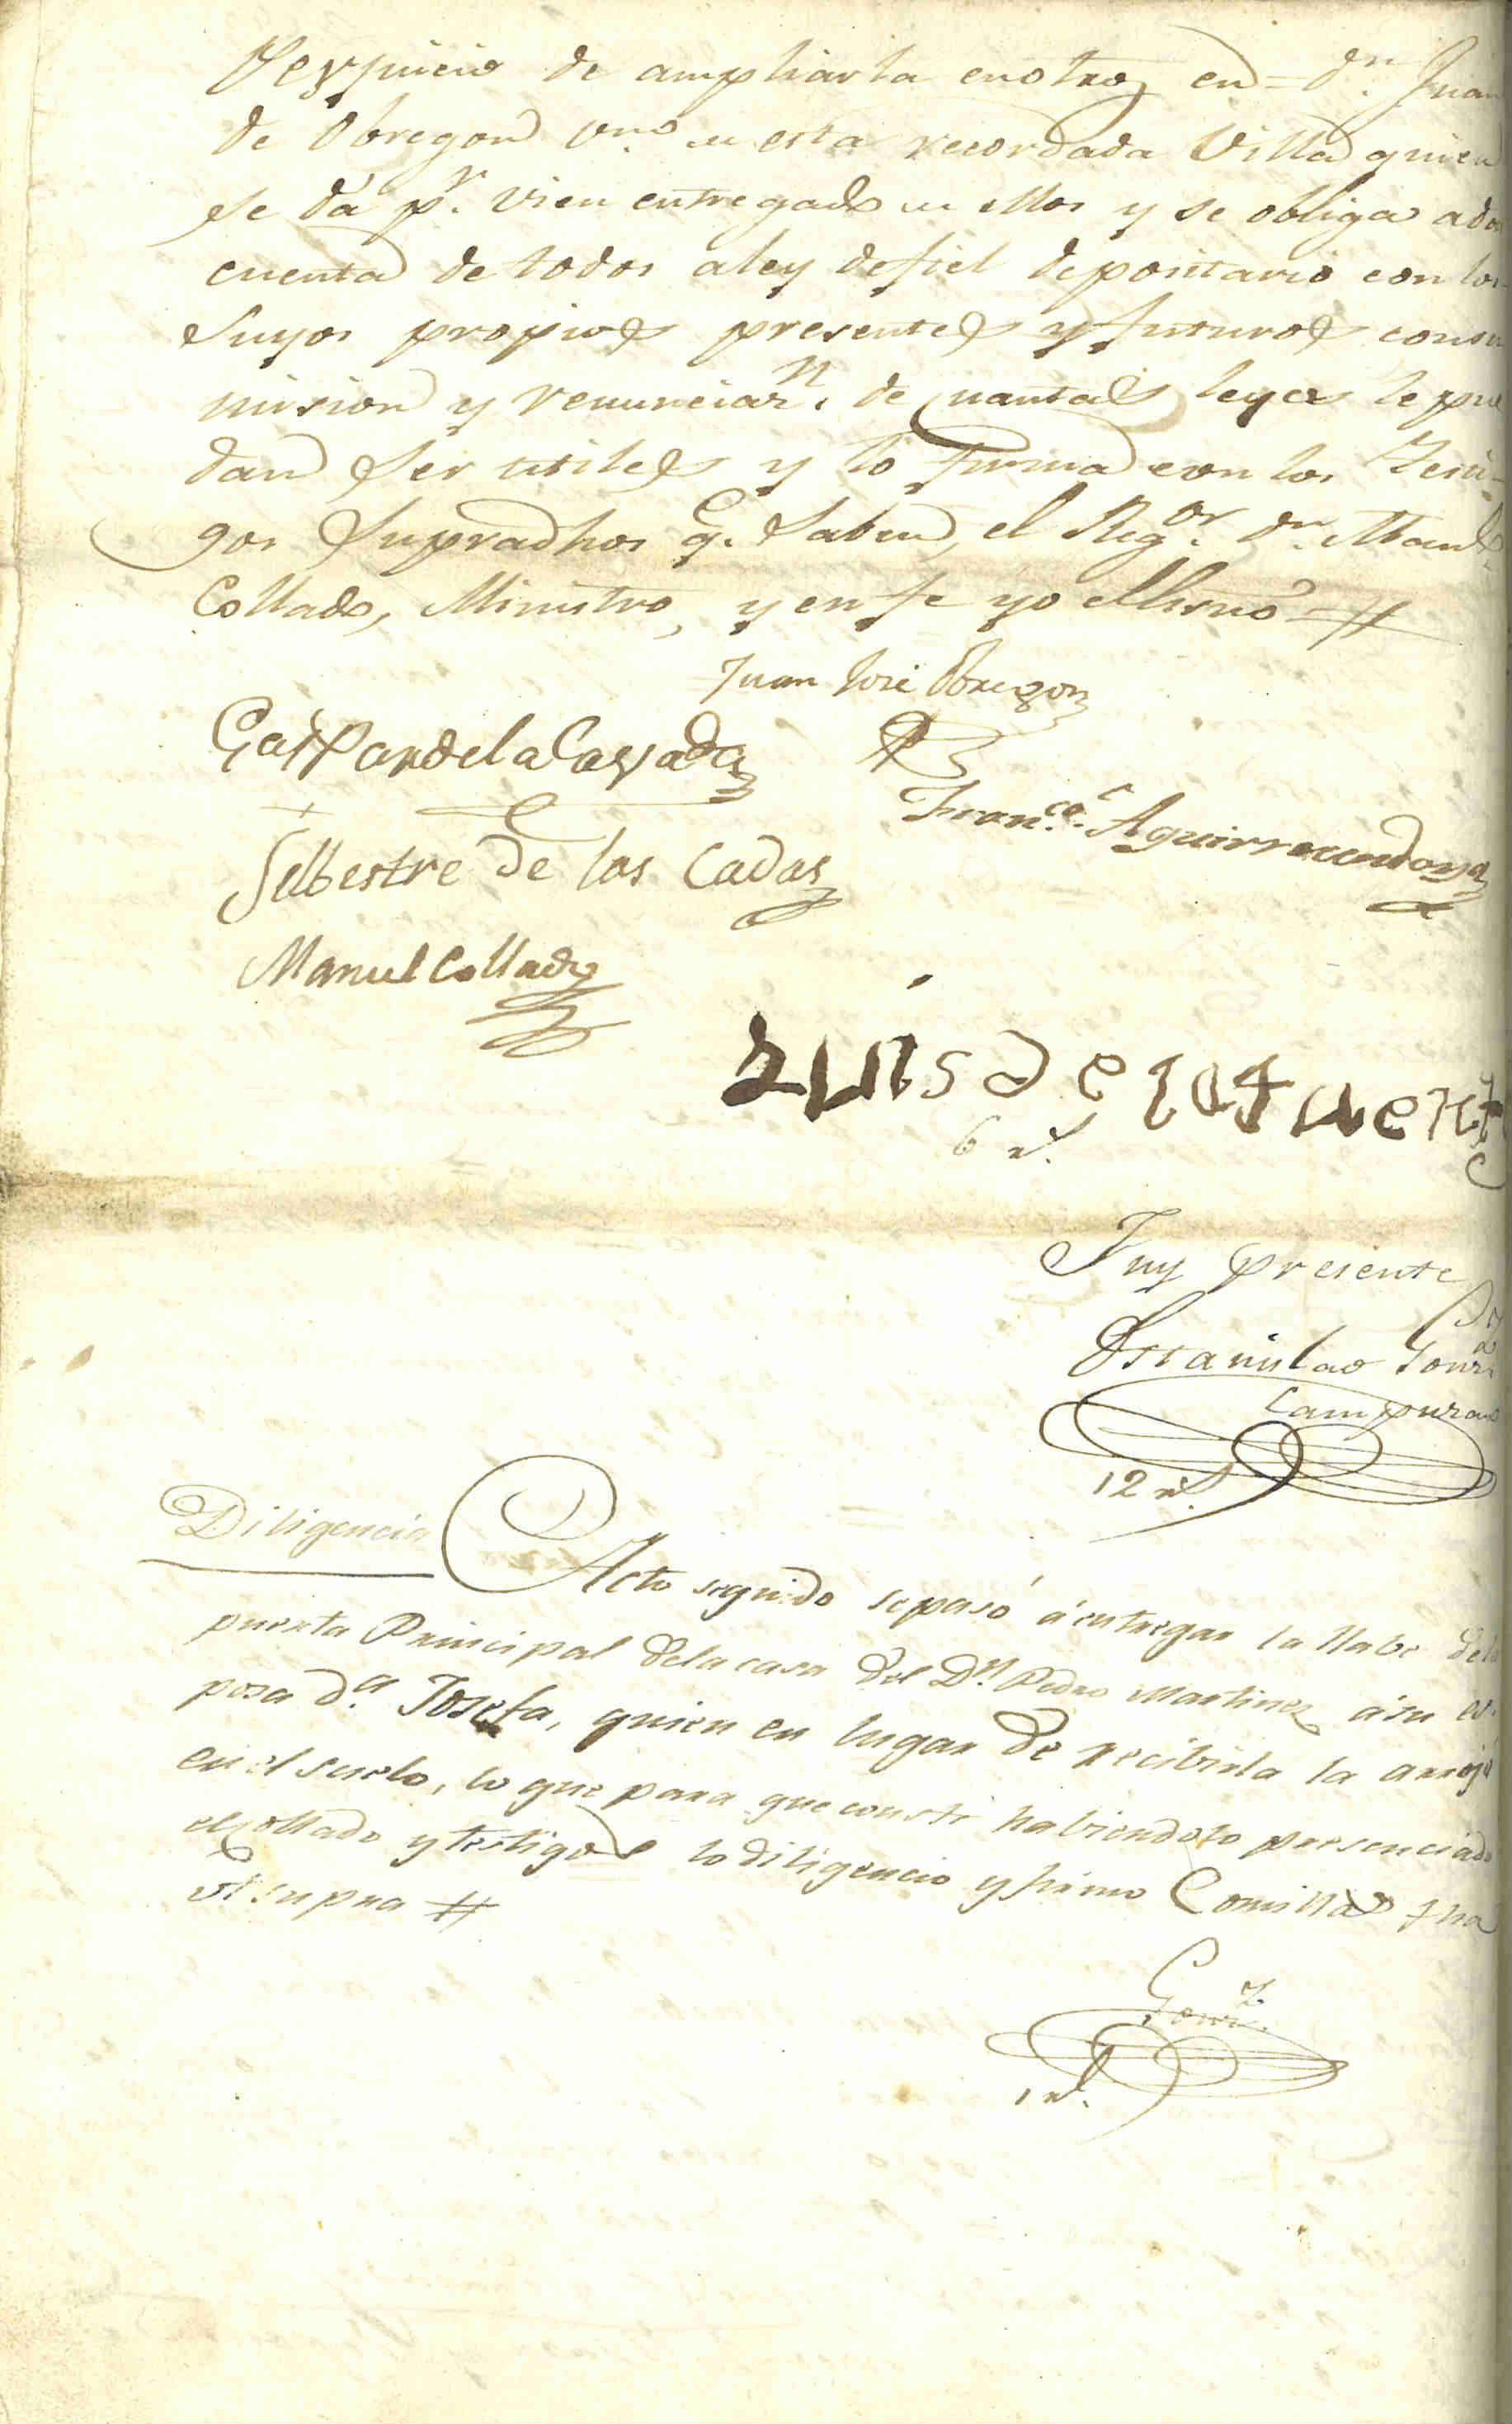 Perjuicio de ampliarla en otros en dn. Juan
de Obregon vno. de esta recordada Villa quien
se da pr. vien entregado de ellos y se obliga a dar
cuenta de todos a ley de fiel depositario con los
suyos propios presentes y futuros con su
mision y renunciazn. de quantas leyes le pue
dan ser utiles y lo firma con los Testi-
gos supradhos q. saben, el Regor. dn. Manl.
Collado, Ministro, y en fe yo el Esno #
Juan José Obregon
Gaspar de la Casada
Franco. Aguirre
Silbestre de las Cadas
Manuel Collado
Luis de la fuente
6 rs.
Fuy presente
Estanislao Gonz
Campuzano
12 rs.
Diligencia
Acto seguido se pasó á entregar la llabe dela
puerta Principal dela casa del Dn. Pedro Martinez á su es-
posa Da. Josefa, quien en lugar de recibirla la arrojó
en el suelo, lo que para que conste habiendolo presenciado
el Collado y testigos lo diligencio y firmo Comillas fha
ut supra #
Gonz.
1 rl.